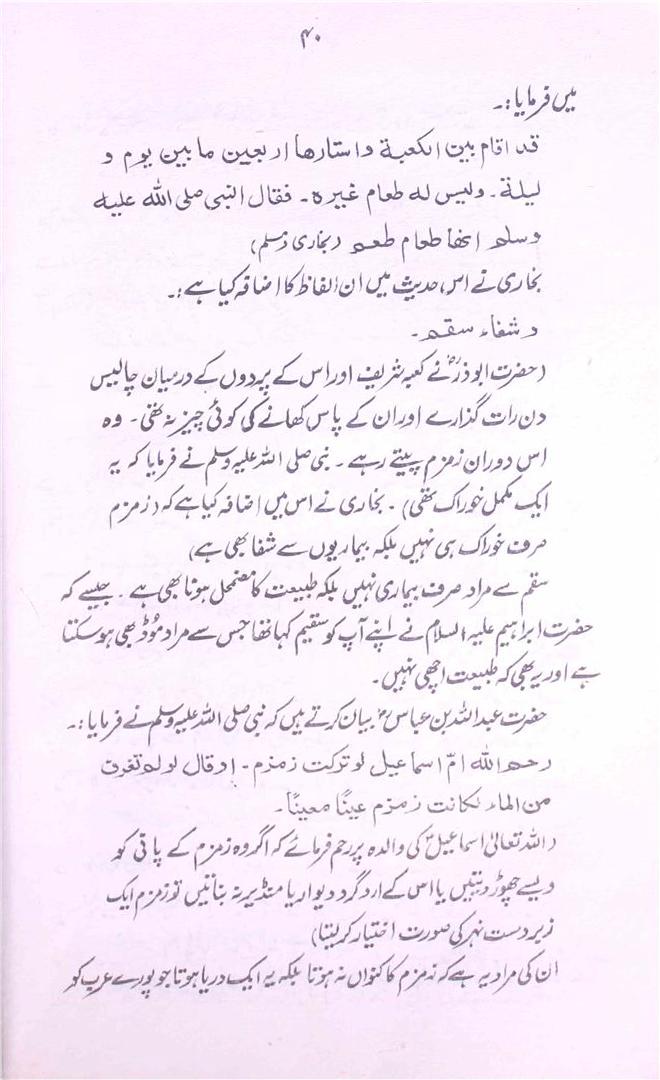 ۴۰
میں فرمایا:۔
قد اقام بین الکعبة واستارها اربعین ما بین یوم و
لیلة۔ ولیس له طعام غیره۔ فقال النبی صلی الله علیه
وسلم انها طعام طعم (بخاری و مسلم)
بخاری نے اس حدیث میں ان الفاظ کا اضافہ کیا ہے:۔
وشفاء سقم۔
(حضرت ابوذرؓ نے کعبہ شریف اور اس کے پردوں کے درمیان چالیس
دن رات گذارے اور ان کے پاس کھانے کی کوئی چیز نہ تھی۔ وہ
اس دوران زمزم پیتے رہے۔ نبی صلی اللہ علیہ وسلم نے فرمایا کہ یہ
ایک مکمل خوراک تھی)۔ بخاری نے اس میں اضافہ کیا ہے کہ (زمزم
صرف خوراک ہی نہیں بلکہ بیماریوں سے شفا بھی ہے)
سقم سے مراد صرف بیماری نہیں بلکہ طبیعت کا مضمحل ہونا بھی ہے۔ جیسے کہ
حضرت ابراہیم علیہ السلام نے اپنے آپ کو سقیم کہا تھا جس سے مراد موُڈ بھی ہو سکتا
ہے اور یہ بھی کہ طبیعت اچھی نہیں۔
حضرت عبداللہ بن عباسؓ بیان کرتے ہیں کہ نبی صلی اللہ علیہ وسلم نے فرمایا:۔
رحم الله امّ اسماعیل لو ترکت زمزم۔ او قال لو لم تغرف
من الماء لکانت زمزم عینًا معینًا۔
(اللہ تعالیٰ اسماعیلؑ کی والدہ پر رحم فرمائے کہ اگر وہ زمزم کے پانی کو
ویسے چھوڑ دیتیں یا اس کے ارد گرد دیوار یا منڈیر نہ بناتیں تو زمزم ایک
زبردست نہر کی صورت اختیار کر لیتا)
ان کی مراد یہ ہے کہ زمزم کا کنواں نہ ہوتا بلکہ یہ ایک دریا ہوتا جو پورے عرب کو